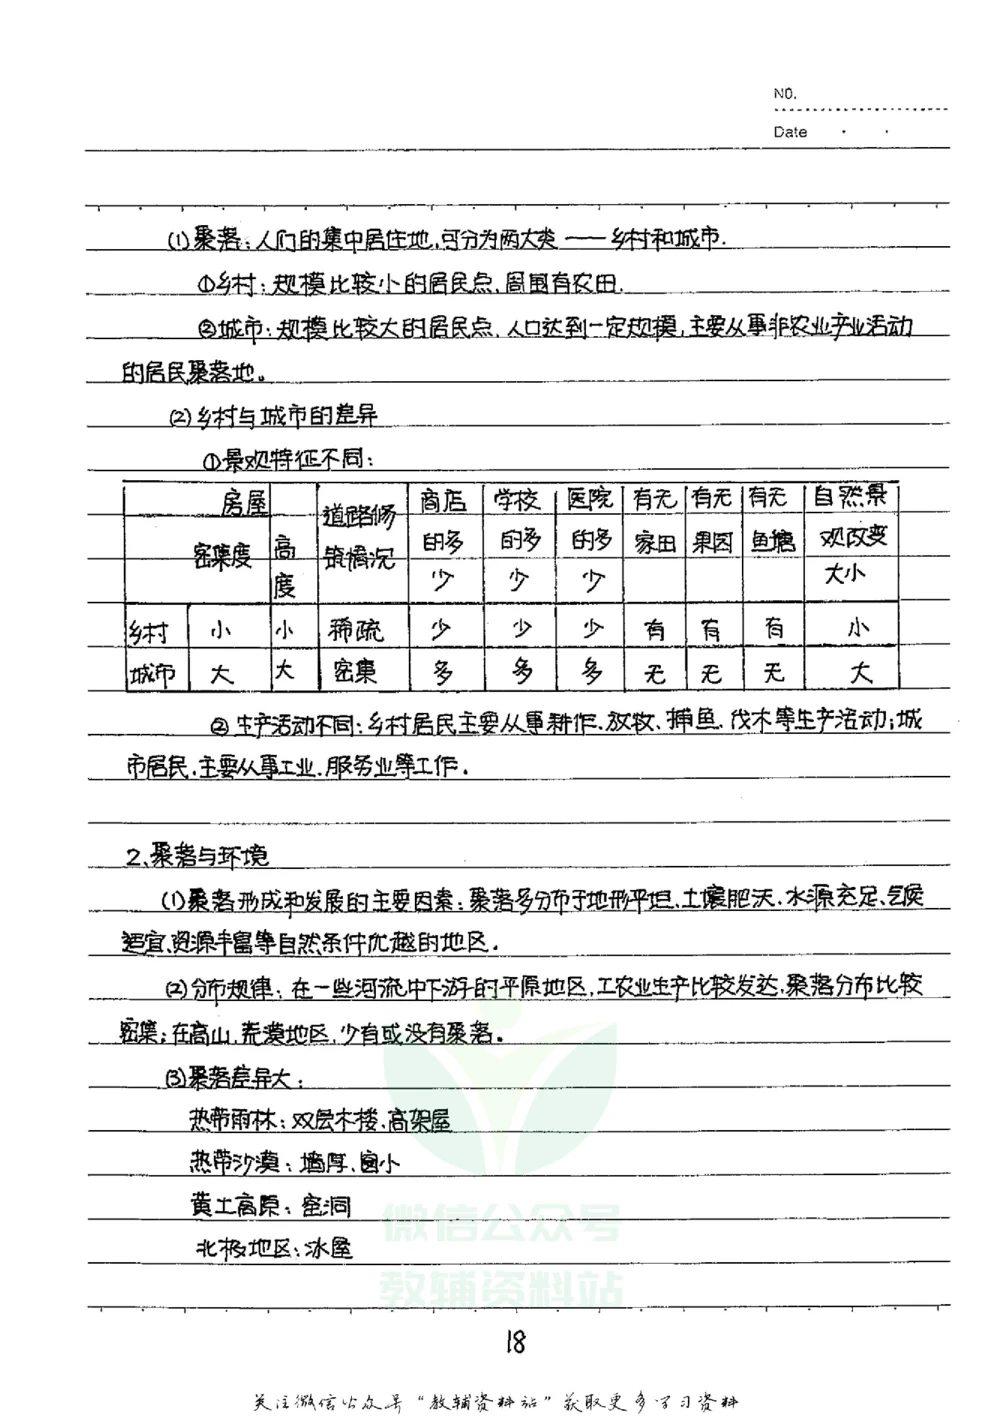 NO.
Date
(1)聚落：人们的集中居住地，可分为两大类——乡村和城市.
①乡村：规模比较小的居民点，周围有农田.
②城市：规模比较大的居民点，人口达到一定规模，主要从事非农业产业活动
的居民聚落地。
(2)乡村与城市的差异
①景观特征不同：
房屋 道路修 商店 学校 医院 有无 有无 有无 自然景
密集度 高 筑情况 的多 的多 的多 家田 果园 鱼塘 观改变
度 少 少 少 大小
乡村 小 小 稀疏 少 少 少 有 有 有 小
城市 大 大 密集 多 多 多 无 无 无 大
②生产活动不同：乡村居民主要从事耕作、放牧、捕鱼、伐木等生产活动；城
市居民，主要从事工业、服务业等工作.
2、聚落与环境
(1)聚落形成和发展的主要因素：聚落多分布于地形平坦、土壤肥沃、水源充足、气候
适宜、资源丰富等自然条件优越的地区.
(2)分布规律：在一些河流中下游的平原地区，工农业生产比较发达，聚落分布比较
密集；在高山、荒漠地区，少有或没有聚落。
(3)聚落差异大：
热带雨林：双层木楼、高架屋
热带沙漠：墙厚、窗小
黄土高原：窑洞
北极地区：冰屋
微信公众号
教辅资料站
18
关注微信公众号“教辅资料站”获取更多学习资料